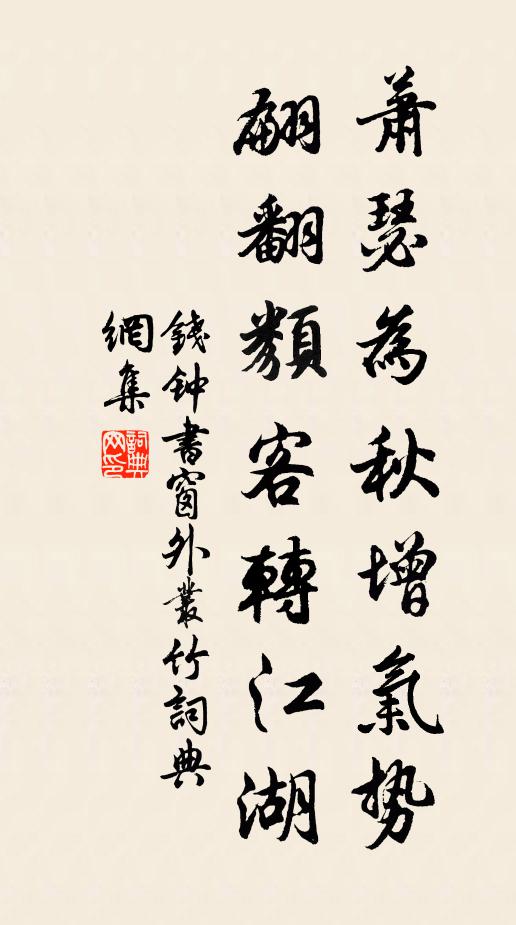 蕭瑟為秋增氣势
翩翻類客轉江湖
錢钟書窗外叢竹詞典
網集
詞典
网印